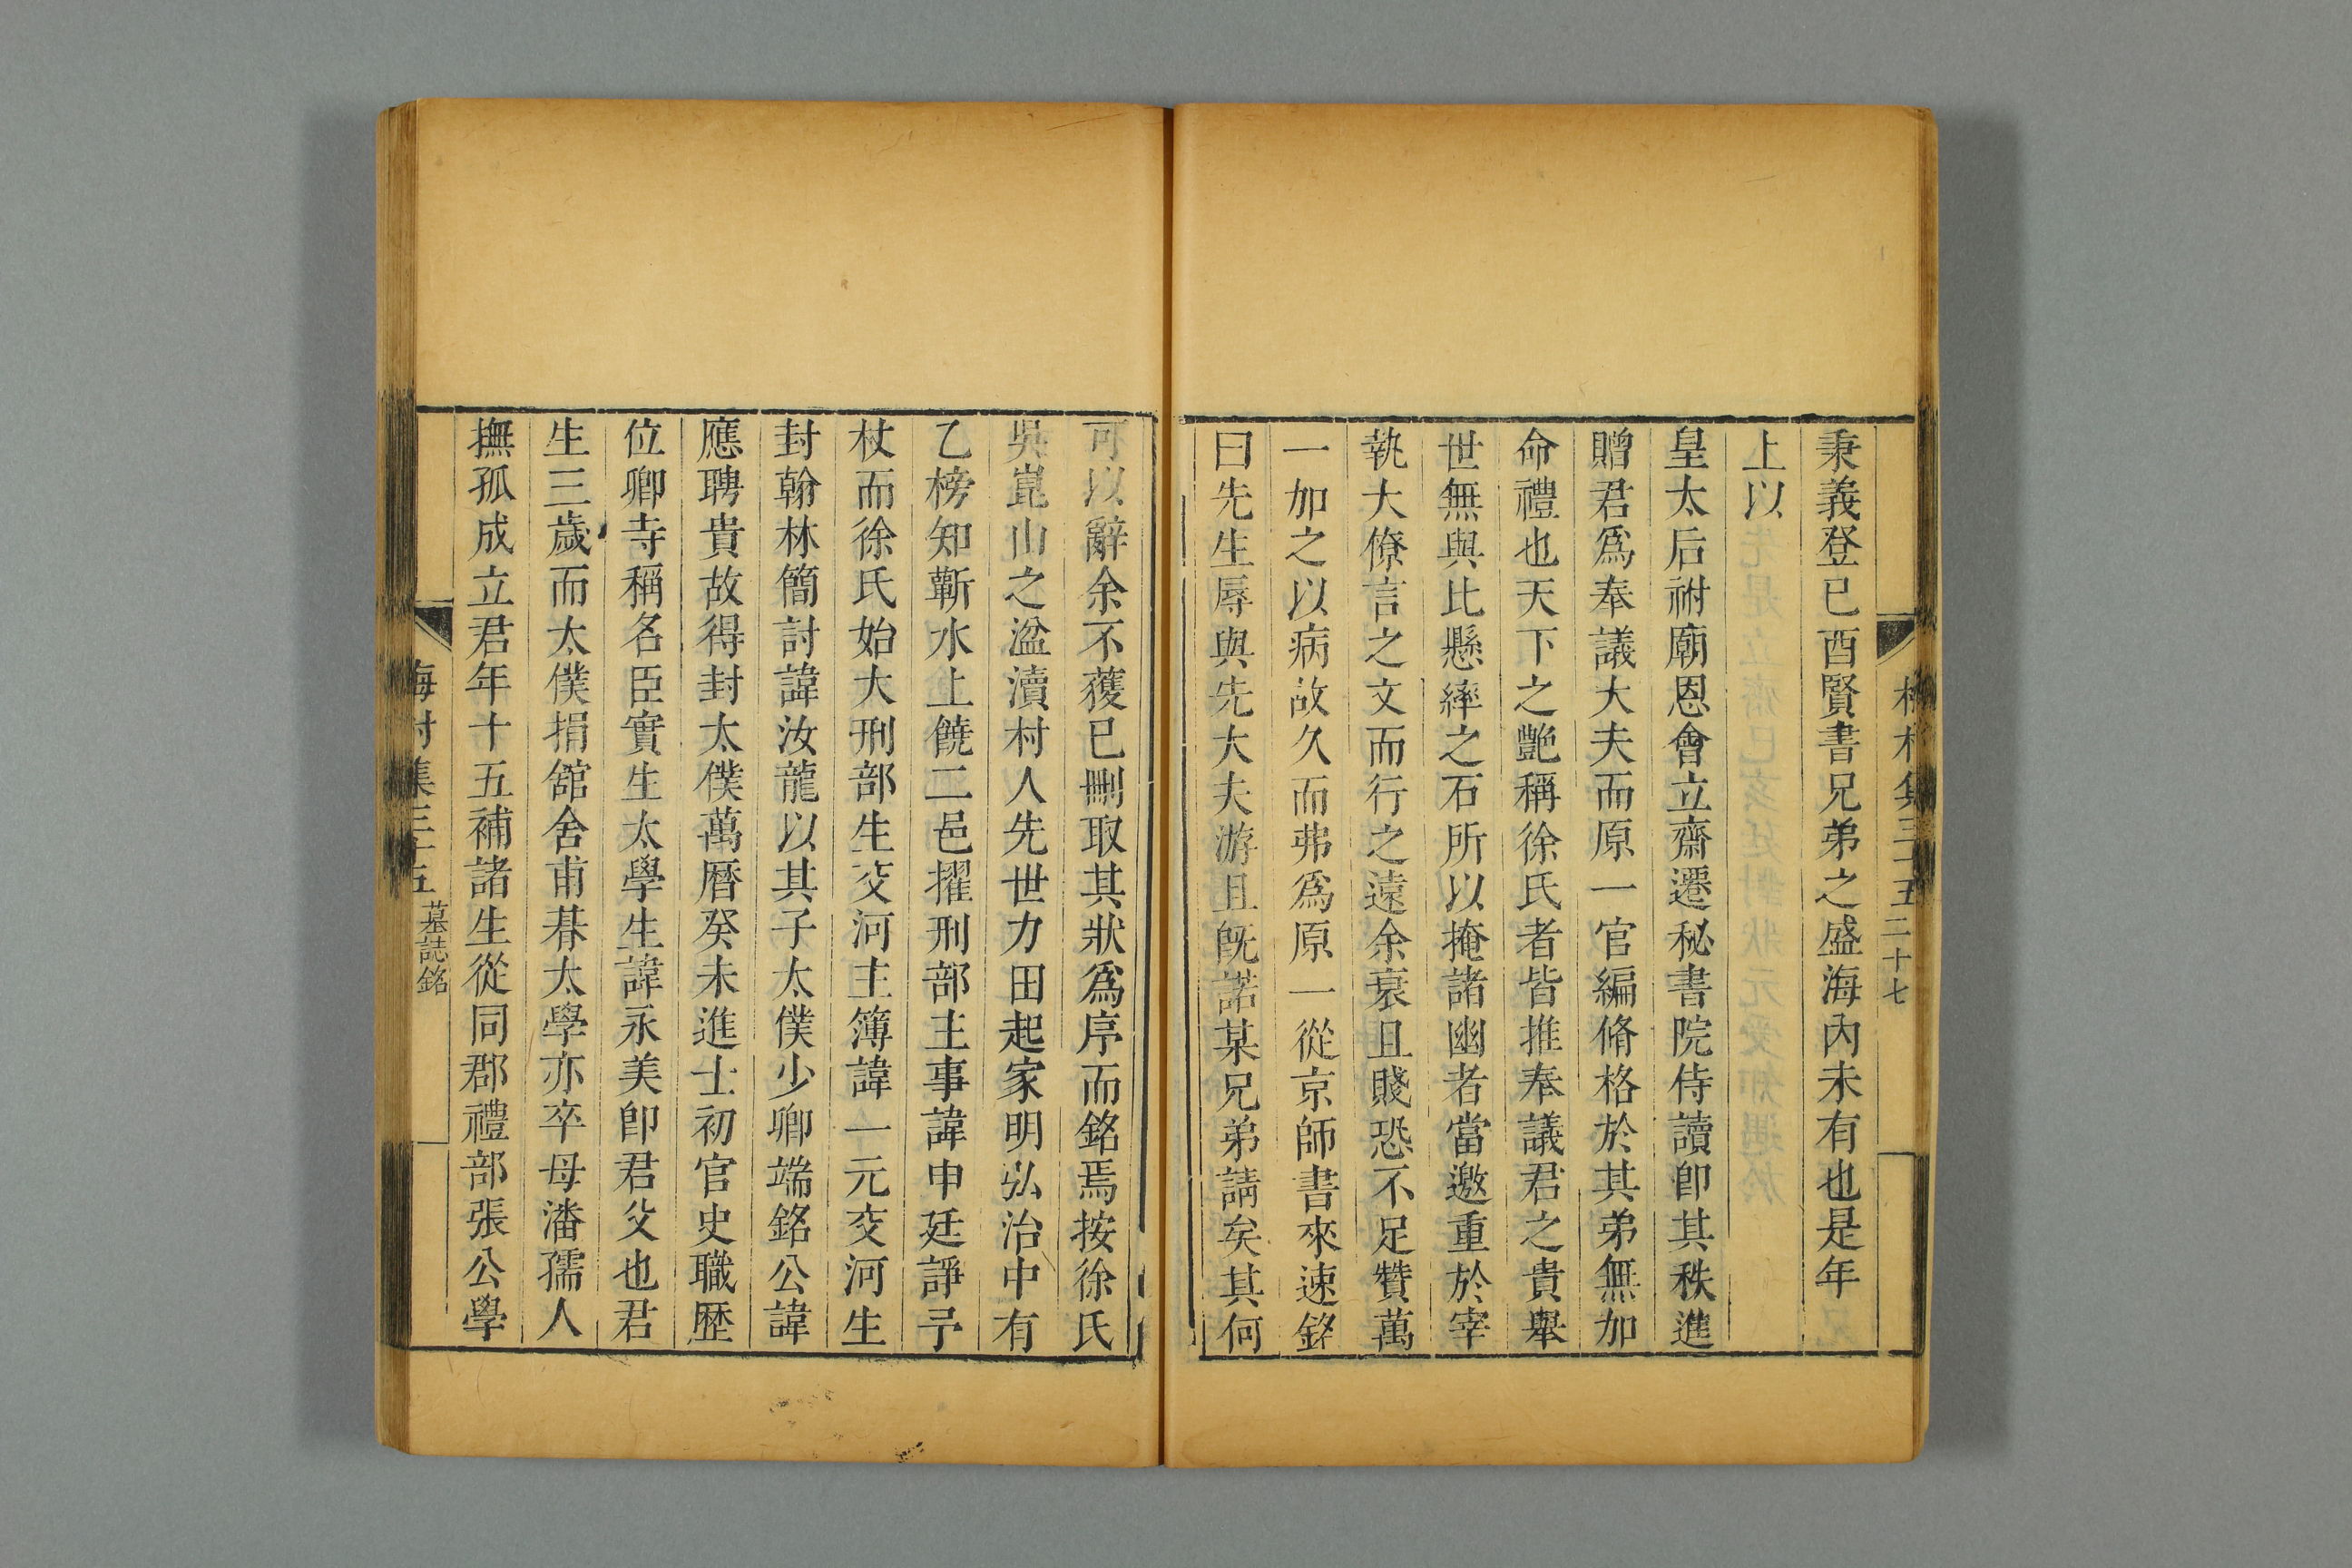 秉義登已酉賢書兄弟之盛海內未有也是年
上以
皇太后祔廟恩會立齋遷秘書院侍讀卽其秩進
贈君爲奉議大夫而原一官編脩格於其弟無加
命禮也天下之艷稱徐氏者皆推奉議君之貴舉
世無與比懸繂之石所以掩諸幽者當邀重於宰
執大僚言之文而行之遠余衰且賤恐不足贊萬
一加之以病故久而弗爲原一從京師書來速銘
曰先生辱與先大夫游且旣諾某兄弟請矣其何
可以辭余不獲已刪取其狀爲序而銘焉按徐氏
吳崑山之湓瀆村人先世力田起家明弘治中有
乙榜知蘄水上饒二邑擢刑部主事諱申廷諍予
杖而徐氏始大刑部生交河主簿諱一元交河生
封翰林簡討諱汝龍以其子太僕少卿端銘公諱
應聘貴故得封太僕萬曆癸未進士初官史職歷
位卿寺稱名臣實生太學生諱永美卽君父也君
生三歲而太僕捐舘舍甫朞太學亦卒母潘孺人
撫孤成立君年十五補諸生從同郡禮部張公學
梅村集三十五 墓誌銘
村集三十五 二十七